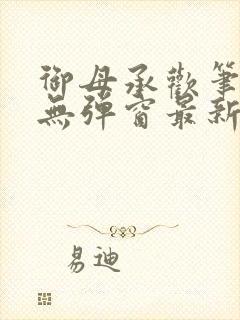 御母承歡筆
無彈窗最新
易迪